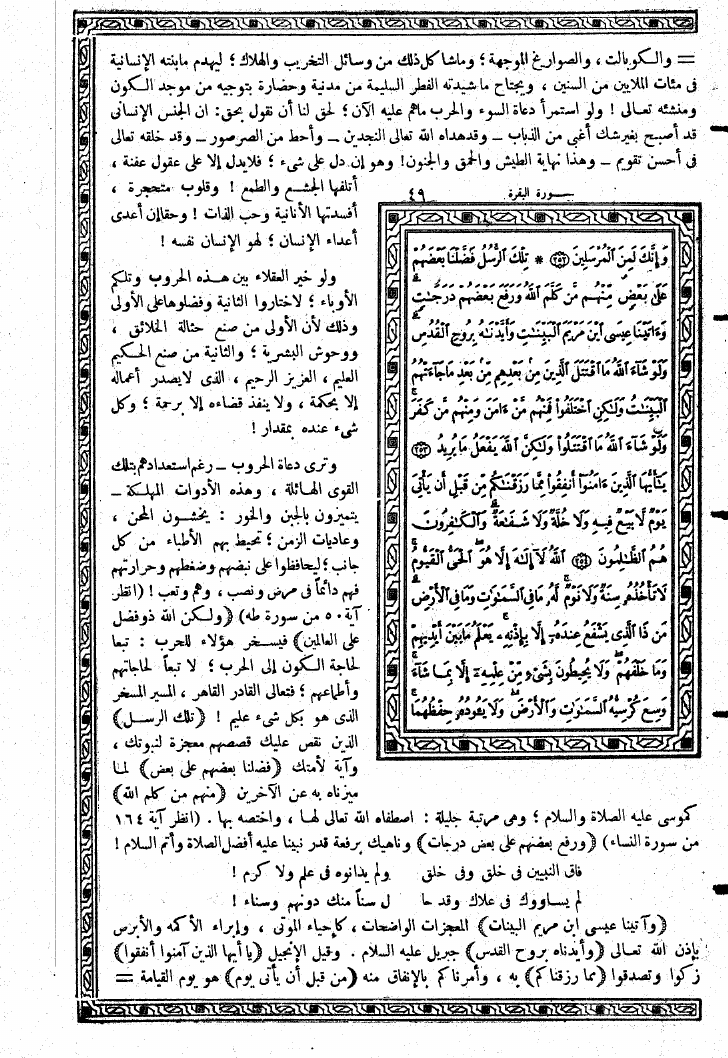 = والكوبالت ، والصواريخ الموجهة ؛ وماشا كل ذلك من وسائل التخريب والهلاك ؛ ليهدم مابنته الإنسانية
فى مئات الملايين من السنين ، ويجتاح ما شيدته الفطر السليمة من مدنية وحضارة بتوجيه من موجد الكون
ومنشئه تعالى ! ولو استمرأ دعاة السوء والحرب ماهم عليه الآن ؛ لحق لنا أن نقول بحق : ان الجنس الإنسانى
قد أصبح بغير شك أغبى من الذباب – وقدهداه الله تعالى النجدين – وأحط من الصرصور – وقد خلقه تعالى
فى أحسن تقويم – وهذا نهاية الطيش والحمق والجنون ! وهو إن دل على شىء ؛ فلا يدل إلا على عقول عفنة ،
أتلفها الجشع والطمع ! وقلوب متحجرة ،
أفسدتها الأنانية وحب الذات ! وحقا إن أعدى
أعداء الإنسان ؛ لهو الإنسان نفسه !
ولو خير العقلاء بين هذه الحروب وتلكم
الأوباء ؛ لاختاروا الثانية وفضلوها على الأولى
وذلك لأن الأولى من صنع حثالة الخلائق ،
ووحوش البشرية ؛ والثانية من صنع الحكيم
العليم ، العزيز الرحيم ، الذى لا يصدر أعماله
إلا بحكمة ، ولا ينفذ قضاءه إلا برحمة ؛ وكل
شىء عنده بمقدار !
وترى دعاة الحروب – رغم استعدادهم بتلك
القوى الهائلة ، وهذه الأدوات المهلكة –
يتميزون بالجبن والخور : يخشون المحن ،
وعاديات الزمن ؛ تحيط بهم الأطباء من كل
جانب ؛ ليحافظوا على نبضهم وضغطهم وحرارتهم
فهم دائماً فى مرض ونصب ، وهم وتعب ! (انظر
آية ٥٠ من سورة طه) (ولكن الله ذو فضل
على العالمين) فيسخر هؤلاء للحرب : تبعا
لحاجة الكون إلى الحرب ؛ لا تبعاً لحاجاتهم
وأطماعهم ؛ فتعالى القادر القاهر ، المسير المسخر
الذى هو بكل شىء عليم ! (تلك الرسل)
الذين نقص عليك قصصهم معجزة لنبوتك ،
وآية لأمتك (فضلنا بعضهم على بعض) لما
ميزناه به عن الآخرين (منهم من كلم الله)
سورة البقرة ٤٩
وَإِنَّكَ لَمِنَ ٱلْمُرْسَلِينَ ۝٢٥٢ * تِلْكَ ٱلرُّسُلُ فَضَّلْنَا بَعْضَهُمْ
عَلَىٰ بَعْضٍ مِّنْهُم مَّن كَلَّمَ ٱللَّهُ وَرَفَعَ بَعْضَهُمْ دَرَجَٰتٍ
وَءَاتَيْنَا عِيسَى ٱبْنَ مَرْيَمَ ٱلْبَيِّنَٰتِ وَأَيَّدْنَٰهُ بِرُوحِ ٱلْقُدُسِ
وَلَوْ شَآءَ ٱللَّهُ مَا ٱقْتَتَلَ ٱلَّذِينَ مِنۢ بَعْدِهِم مِّنۢ بَعْدِ مَا جَآءَتْهُمُ
ٱلْبَيِّنَٰتُ وَلَٰكِنِ ٱخْتَلَفُوا۟ فَمِنْهُم مَّنْ ءَامَنَ وَمِنْهُم مَّن كَفَرَ
وَلَوْ شَآءَ ٱللَّهُ مَا ٱقْتَتَلُوا۟ وَلَٰكِنَّ ٱللَّهَ يَفْعَلُ مَا يُرِيدُ ۝٢٥٣
يَٰٓأَيُّهَا ٱلَّذِينَ ءَامَنُوٓا۟ أَنفِقُوا۟ مِمَّا رَزَقْنَٰكُم مِّن قَبْلِ أَن يَأْتِىَ
يَوْمٌ لَّا بَيْعٌ فِيهِ وَلَا خُلَّةٌ وَلَا شَفَٰعَةٌ وَٱلْكَٰفِرُونَ
هُمُ ٱلظَّٰلِمُونَ ۝٢٥٤ ٱللَّهُ لَآ إِلَٰهَ إِلَّا هُوَ ٱلْحَىُّ ٱلْقَيُّومُ
لَا تَأْخُذُهُۥ سِنَةٌ وَلَا نَوْمٌ لَّهُۥ مَا فِى ٱلسَّمَٰوَٰتِ وَمَا فِى ٱلْأَرْضِ
مَن ذَا ٱلَّذِى يَشْفَعُ عِندَهُۥٓ إِلَّا بِإِذْنِهِۦ يَعْلَمُ مَا بَيْنَ أَيْدِيهِمْ
وَمَا خَلْفَهُمْ وَلَا يُحِيطُونَ بِشَىْءٍ مِّنْ عِلْمِهِۦٓ إِلَّا بِمَا شَآءَ
وَسِعَ كُرْسِيُّهُ ٱلسَّمَٰوَٰتِ وَٱلْأَرْضَ وَلَا يَـُٔودُهُۥ حِفْظُهُمَا
كموسى عليه الصلاة والسلام ؛ وهى مرتبة جليلة : اصطفاه الله تعالى لها ، واختصه بها . (انظر آية ١٦٤
من سورة النساء) (ورفع بعضهم على بعض درجات) وناهيك برفعة قدر نبينا عليه أفضل الصلاة وأتم السلام !
فاق النبيين فى خلق وفى خلق ولم يدانوه فى علم ولا كرم !
لم يساووك فى علاك وقد حا ل سناً منك دونهم وسناء !
(وآتينا عيسى ابن مريم البينات) المعجزات الواضحات ، كإحياء الموتى ، وإبراء الأكمه والأبرص
بإذن الله تعالى (وأيدناه بروح القدس) جبريل عليه السلام . وقيل الإنجيل (يا أيها الذين آمنوا أنفقوا)
زكوا وتصدقوا (مما رزقناكم) به ، وأمرناكم بالإنفاق منه (من قبل أن يأتى يوم) هو يوم القيامة =